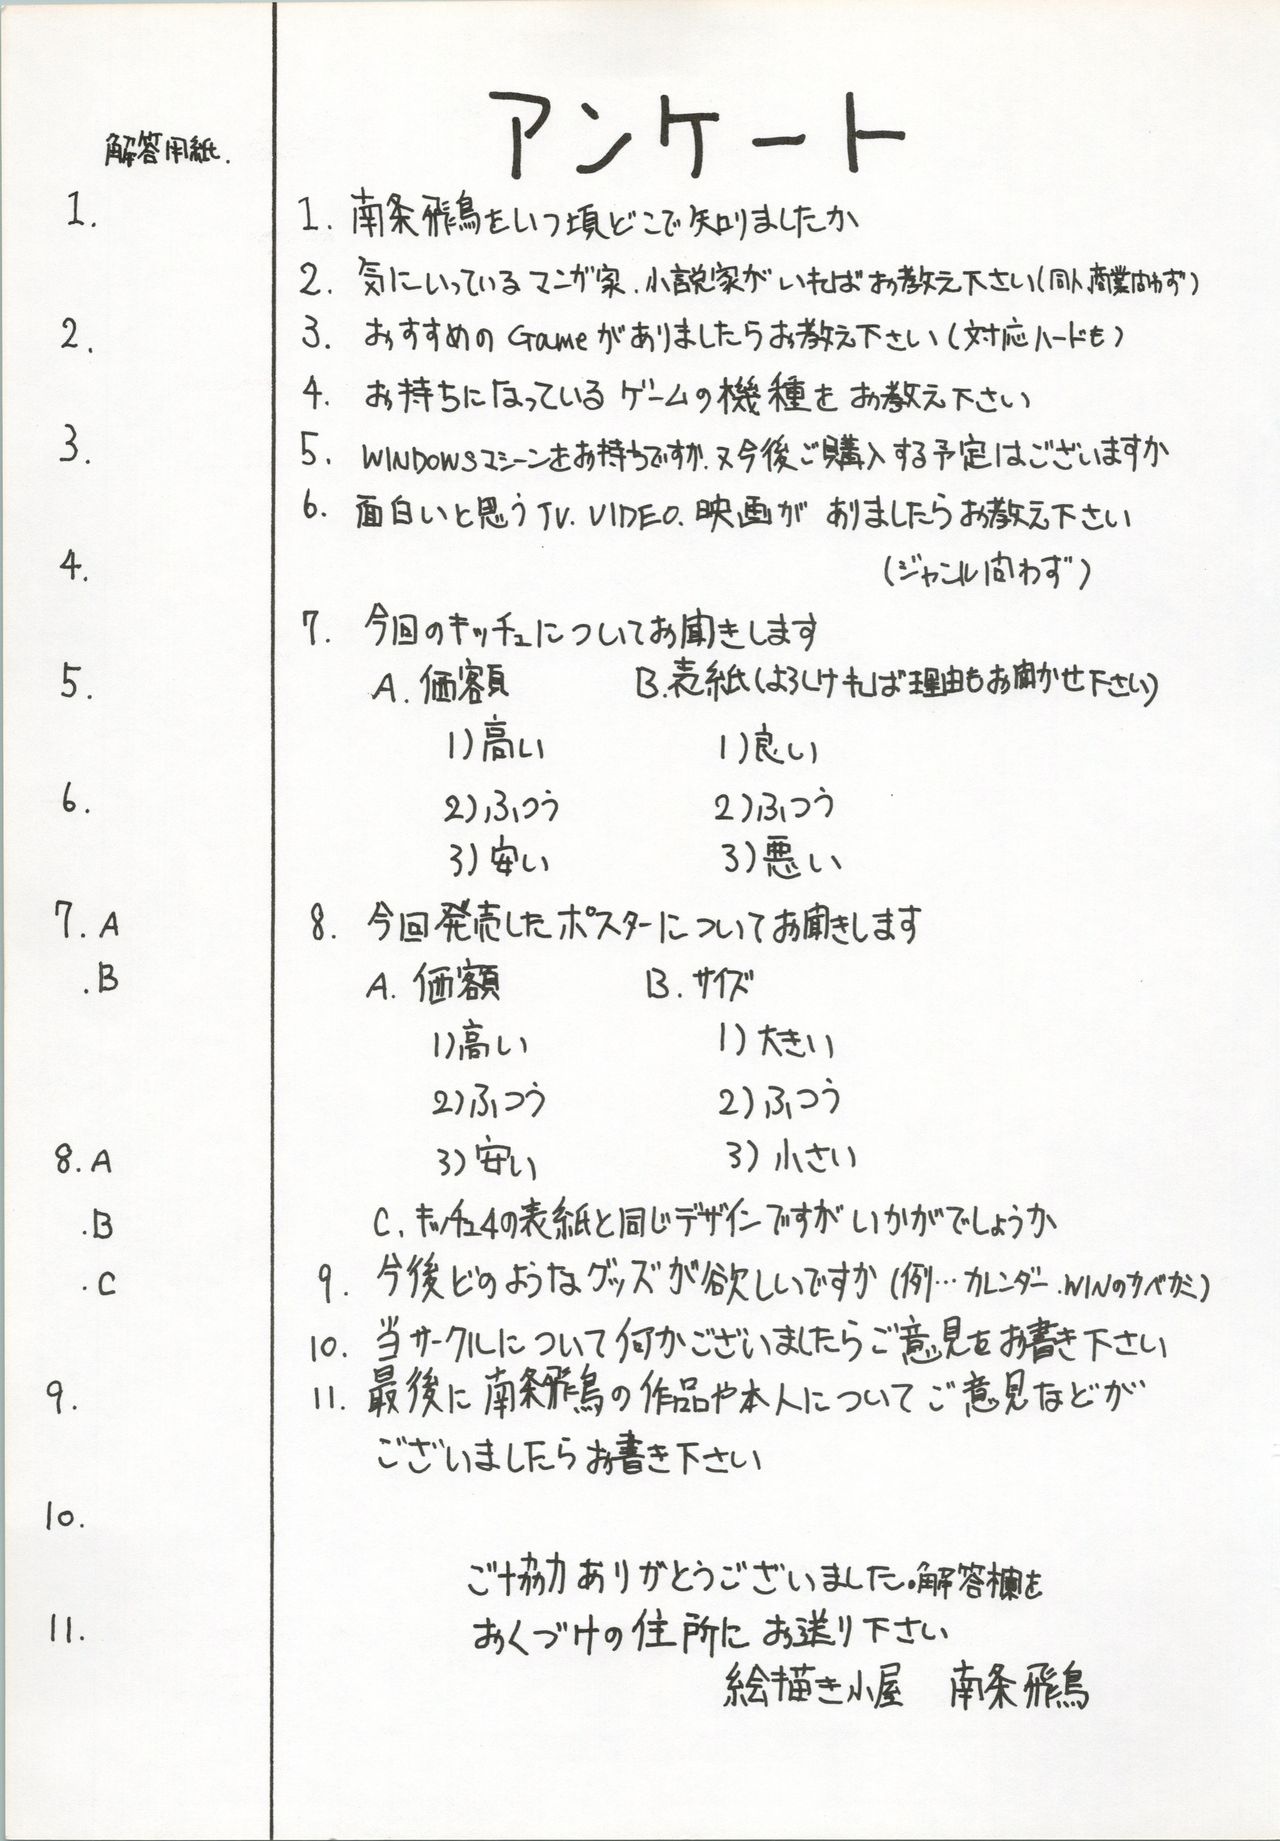 解答用紙.
1.
2.
3.
4.
5.
6.
7. A
.B
8. A
.B
.C
9.
10.
11.
アンケート
1. 南条飛鳥をいつ頃どこで知りましたか
2. 気にいっているマンガ家.小説家がいればお教え下さい(同人,商業問わず)
3. おすすめのGameがありましたらお教え下さい(対応ハードも)
4. お持ちになっているゲームの機種をお教え下さい
5. WINDOWSマシーンをお持ちですか.又今後ご購入する予定はございますか
6. 面白いと思うTV.VIDEO.映画がありましたらお教え下さい
(ジャンル問わず)
7. 今回のキッチュについてお聞きします
A. 価額 B.表紙(よろしければ理由もお聞かせ下さい)
1)高い 1)良い
2)ふつう 2)ふつう
3)安い 3)悪い
8. 今回発売したポスターについてお聞きします
A. 価額 B.サイズ
1)高い 1)大きい
2)ふつう 2)ふつう
3)安い 3)小さい
C. キッチュ4の表紙と同じデザインですがいかがでしょうか
9. 今後どのようなグッズが欲しいですか(例…カレンダー.WINのカベガミ)
10. 当サークルについて何かございましたらご意見をお書き下さい
11. 最後に南条飛鳥の作品や本人についてご意見などが
ございましたらお書き下さい
ご協力ありがとうございました。解答欄を
おくづけの住所にお送り下さい
絵描き小屋 南条飛鳥